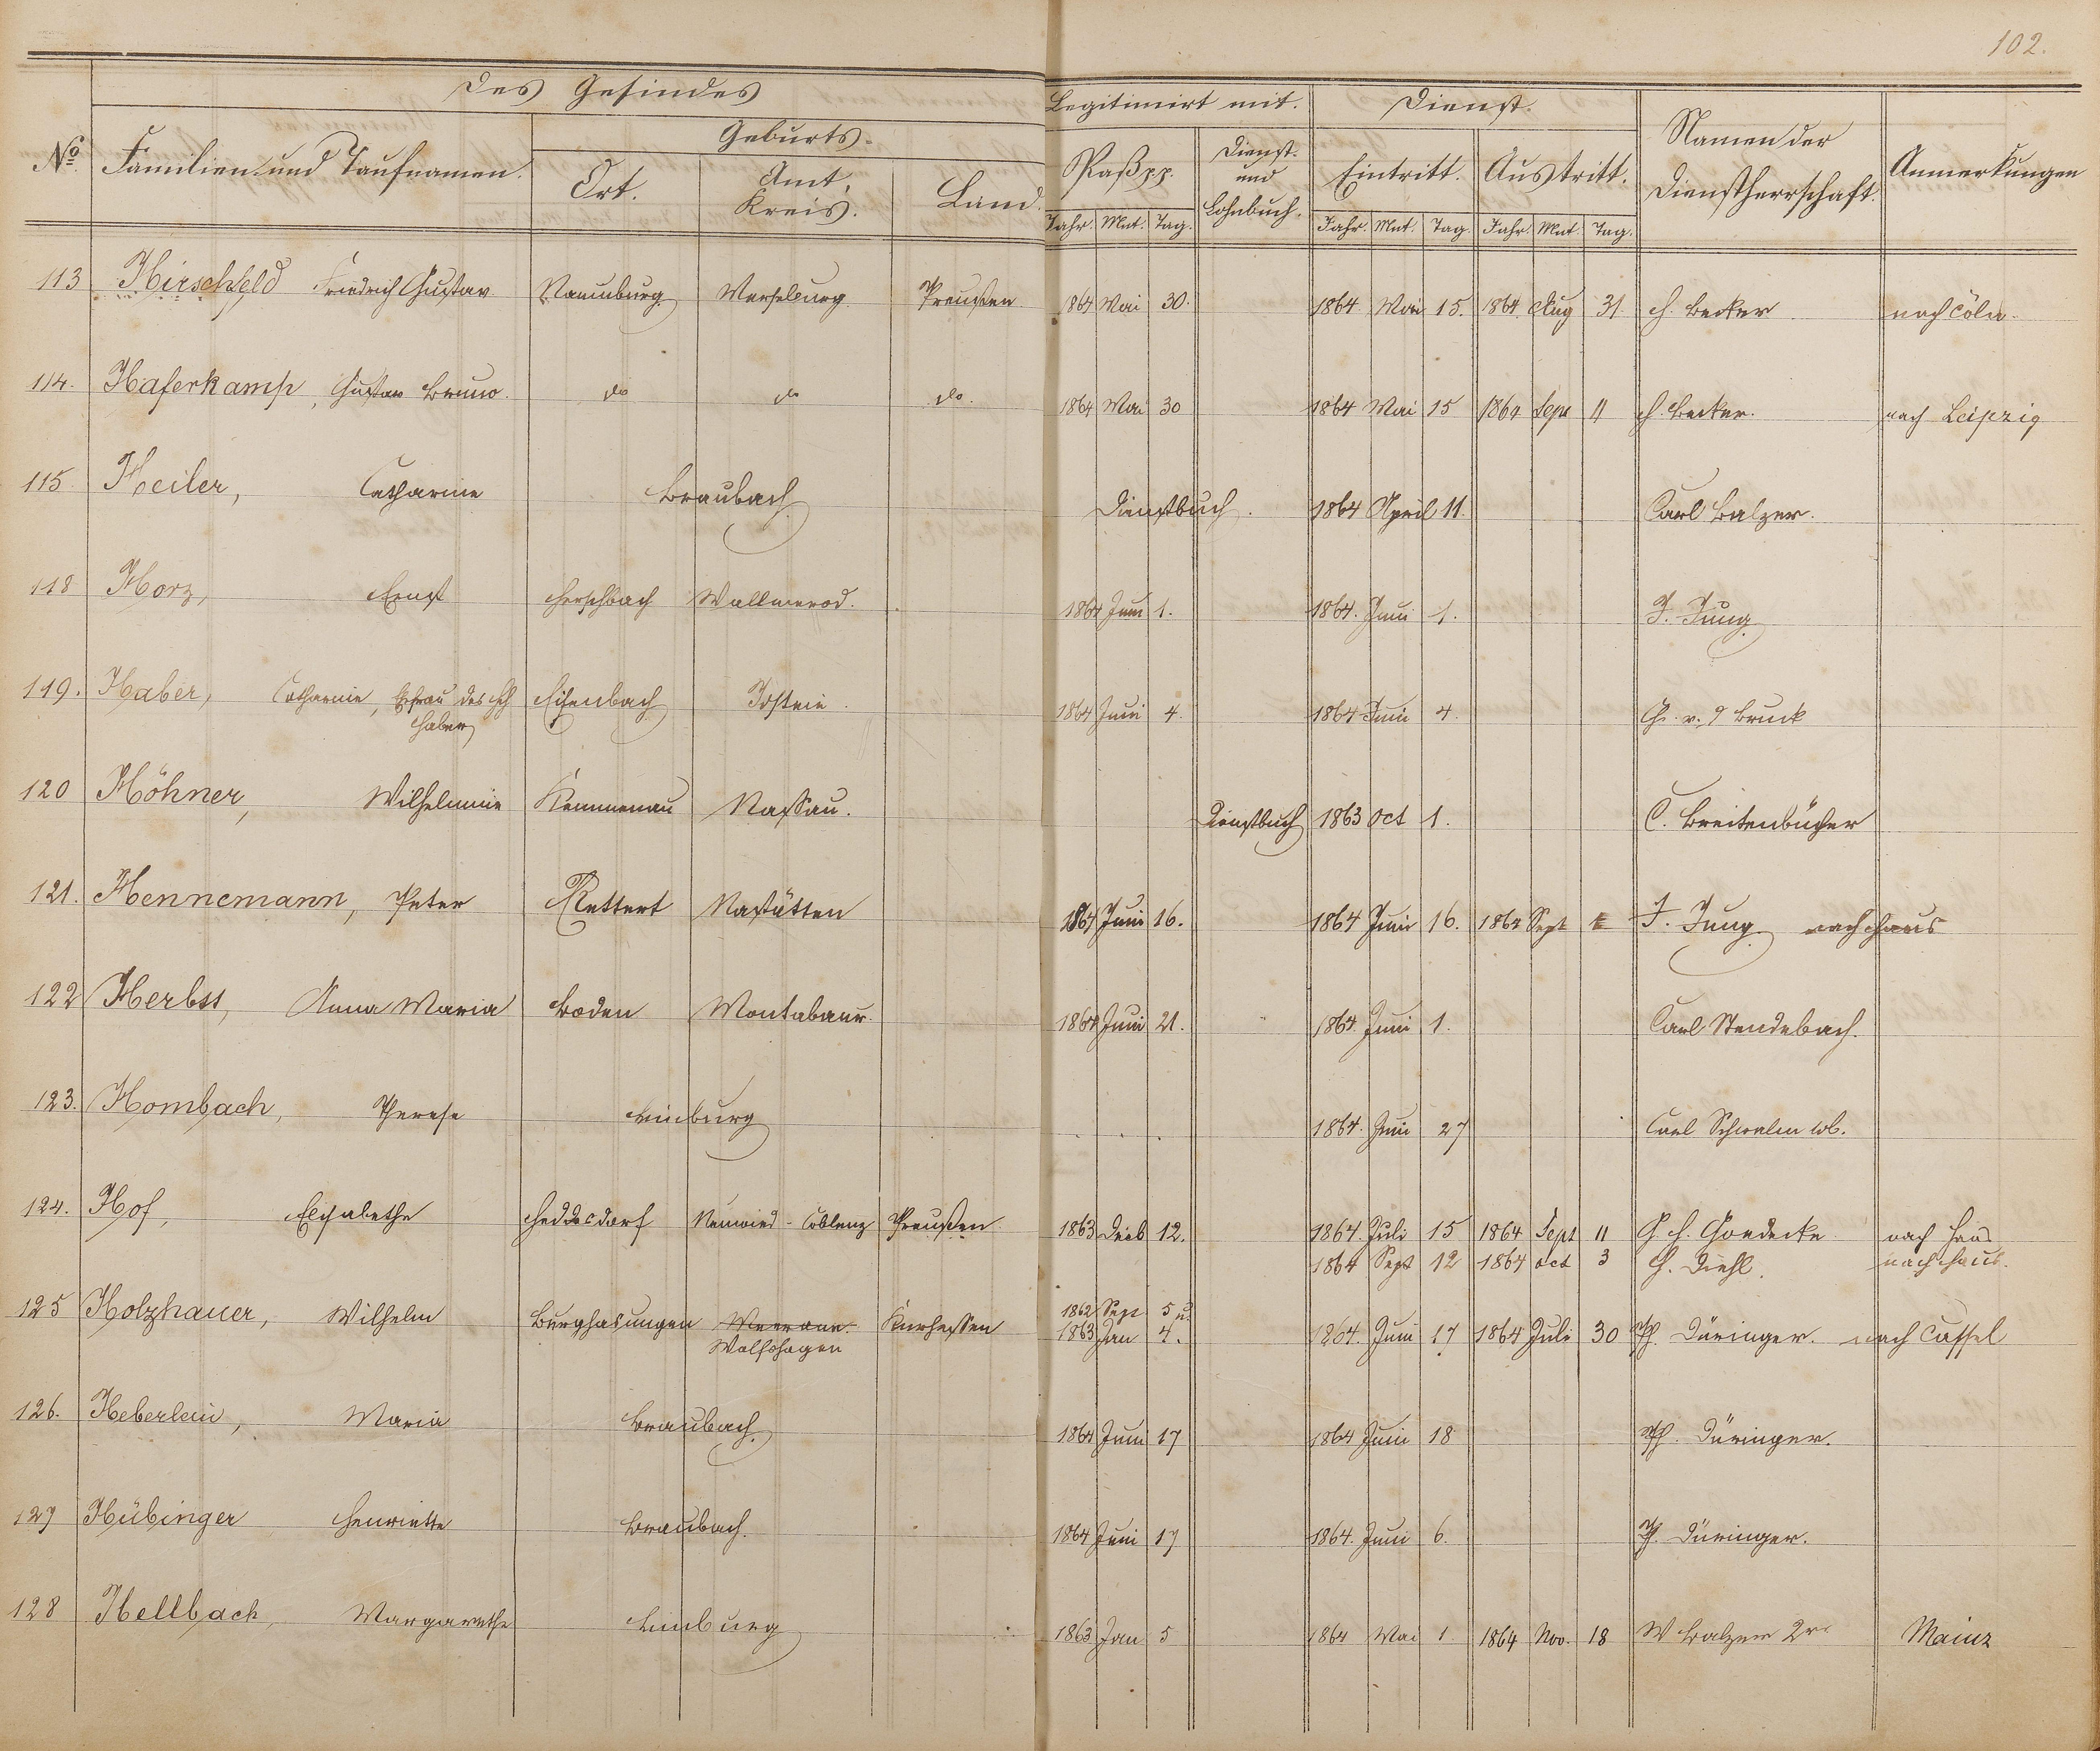 102.
Des Gesindes
Legitimirt mit.
Dienst.
No.
Familien- und Taufnamen.
Geburts-
Ort.
Amt, Kreis.
Land.
Paß pp.
Dienst- und Lohnbuch.
Eintritt.
Austritt.
Namen der Dienstherrschaft.
Anmerkungen
Jahr. Mnt. Tag. Jahr. Mnt. Tag. Jahr. Mnt. Tag.
113 Hirschfeld Friedrich Gustav Naumburg Merseburg Preußen 1864 Mai 30. 1864 Mai 15. 1864 Aug 31. H. Becker nach Cöln.
114. Haferkamp, Gustav Bruno. do do do. 1864 Mai 30 1864 Mai 15 1864 Sept 11 H. Becker. nach Leipzig
115 Heiler, Catharine Braubach Dienstbuch. 1864 April 11. Carl Balzer.
118 Horz, Ernst Herschbach Wallmerod. 1864 Juni 1. 1864. Juni 1. J. Jung
119. Haber, Catharine, Ehfrau des Haber Eisenbach Idstein. 1864 Juni 4. 1864 Juni 4. v. d Bruck
120 Höhner, Wilhelmine Kemmenau Nassau. Dienstbuch 1863 Oct 1. C. Breitenbücher
121. Hennemann, Peter Rettert Nastätten 1864 Juni 16. 1864 Juni 16. 1864 Sept J. Jung nach Haus
122 Herbst, Anna Maria Boden Montabaur. 1864 Juni 21. 1864 Juni 1. Carl Stendebach.
123. Hombach, Therese Limburg 1864. Juni 27 Carl Schwalm
124. Hof, Elisabethe Heddesdorf Neuwied - Coblenz Preußen. 1863 Dcb 12. 1864. Juli 15 1864 Sept 11 G. H. Goedecke nach Haus
1864 Sept 12 1864 Oct 3 H. Diehl. nach Haus.
125 Holzhauer, Wilhelm Burghasungen Wolfshagen Kurhessen 1862 Sept 5 u. 1863 Jan 4. 1864. Juni 17 1864 Juli 30 Ph. Düringer. nach Cassel
126. Heberlein, Maria Braubach. 1864 Juni 17 1864 Juni 18 Ph. Düringer.
127 Hübinger Henriette Braubach. 1864 Juni 17 1864. Juni 6. Ph. Düringer.
128 Hellbach, Margarethe Limburg 1863 Jan 5 1864 Mai 1. 1864 Nov. 18 W Balzer 2r Mainz